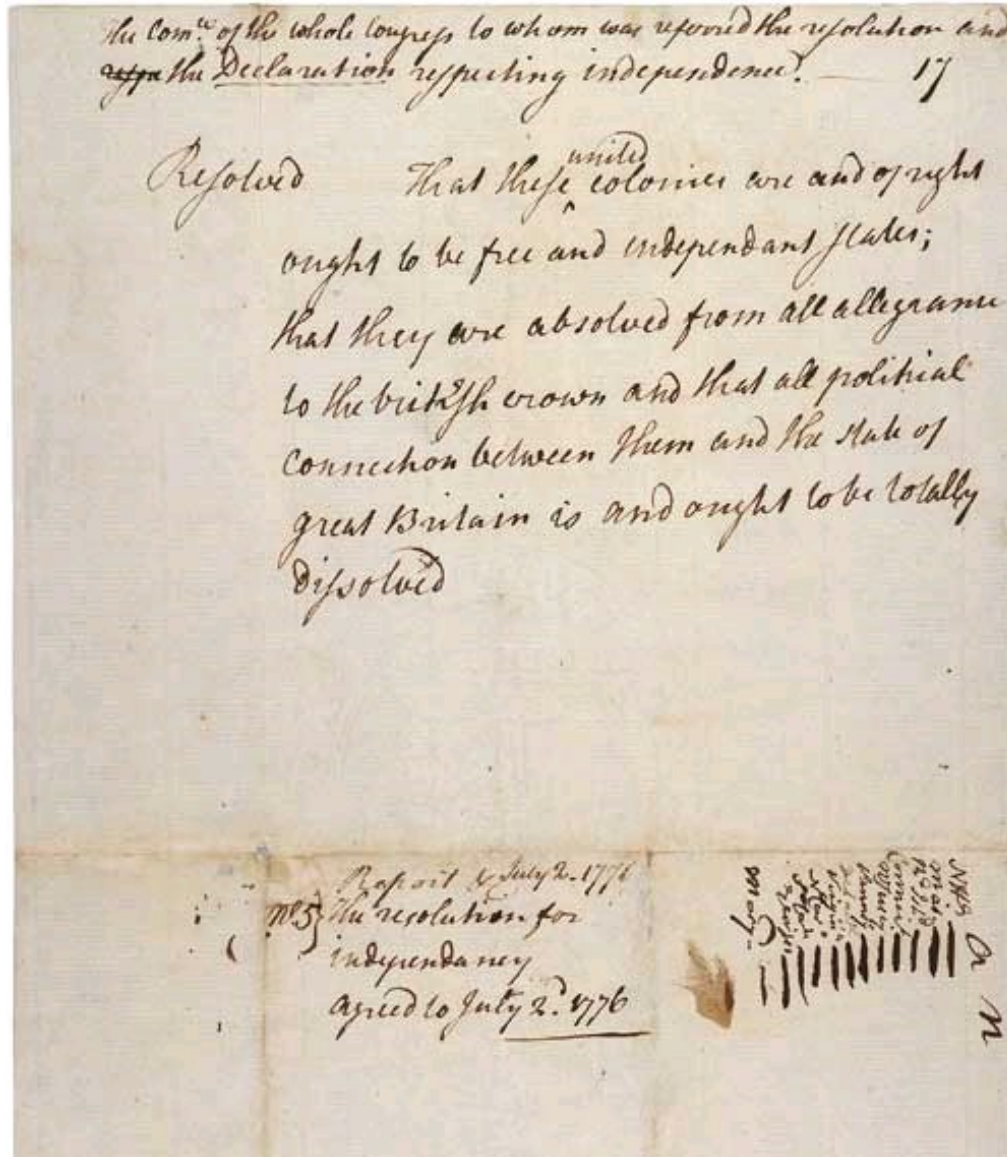 The Com.ee of the whole Congress to whom was referred the resolution and
the Declaration respecting independence. — 17
Resolved That these united colonies are and of right
ought to be free and independant states;
that they are absolved from all allegiance
to the british crown and that all political
connection between them and the state of
great Britain is and ought to be totally
dissolved
Report & July 2. 1776
No. 5} the resolution for
independancy
agreed to July 2d. 1776
a
n
N H
Virginia